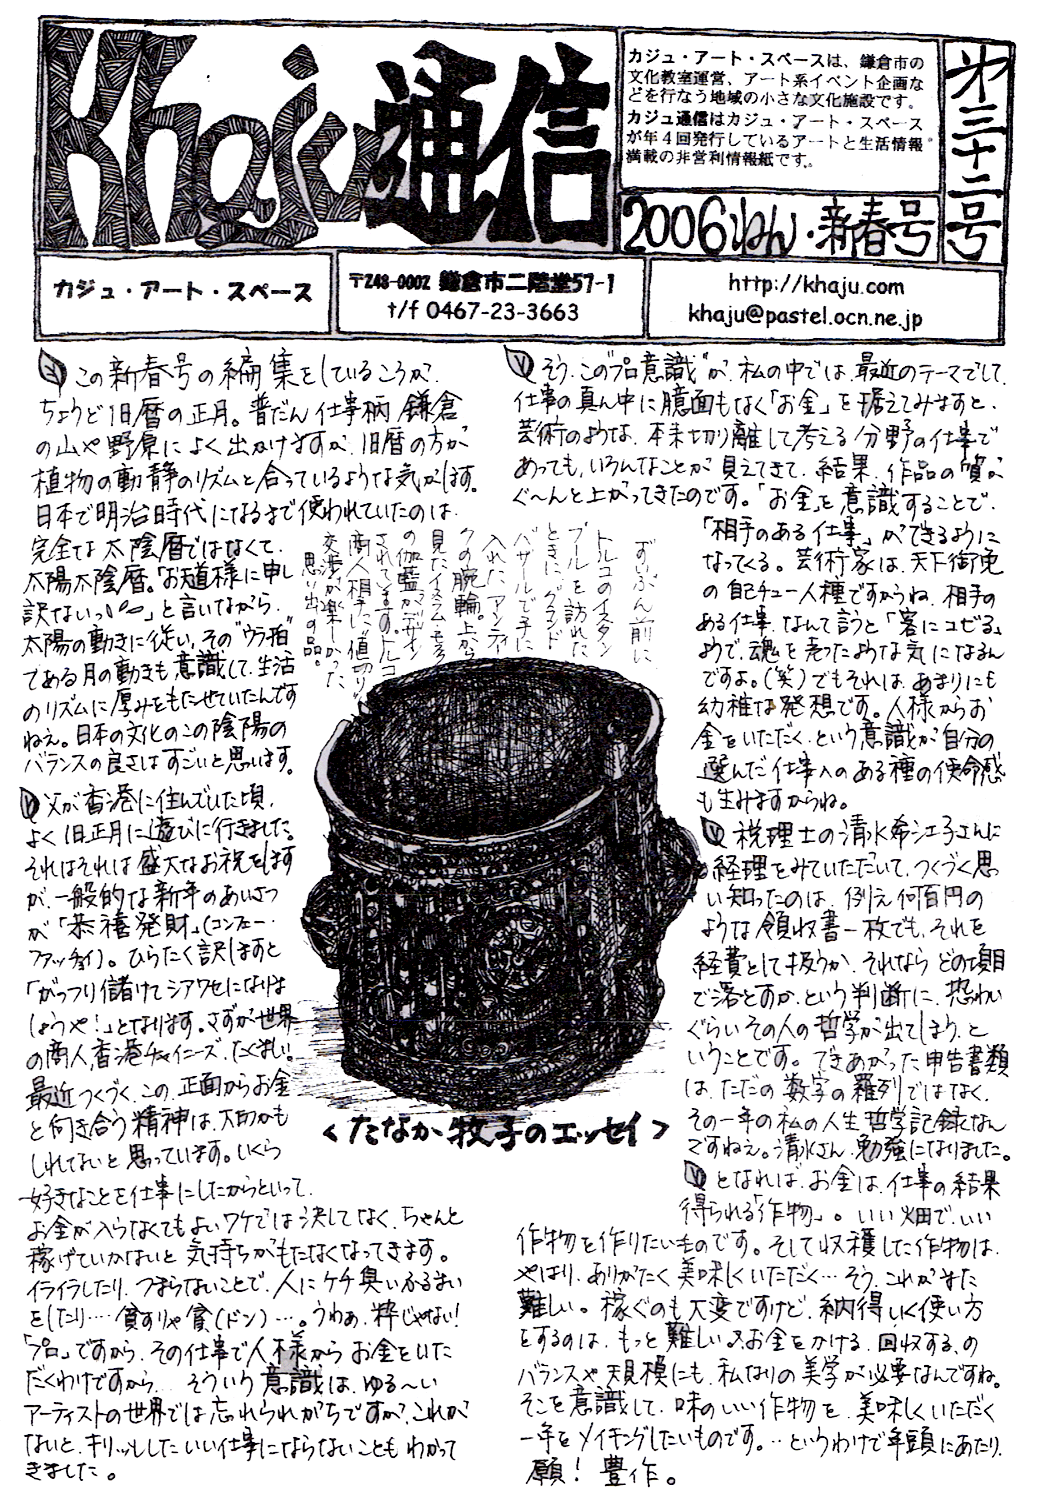 Khaju通信
カジュ・アート・スペースは、鎌倉市の
文化教室運営、アート系イベント企画な
どを行なう地域の小さな文化施設です。
カジュ通信はカジュ・アート・スペース
が年4回発行しているアートと生活情報
満載の非営利情報紙です。
2006ねん・新春号
第三十二号
カジュ・アート・スペース
〒248-0002 鎌倉市二階堂57-1
t/f 0467-23-3663
http://khaju.com
khaju@pastel.ocn.ne.jp
この新春号の編集をしているころが、
ちょうど旧暦の正月。普だん仕事柄、鎌倉
の山や野原によく出かけますが、旧暦の方が
植物の動静のリズムと合っているような気がします。
日本で明治時代になるまで使われていたのは、
完全な太陰暦ではなくて、
太陽太陰暦。「お天道様に申し
訳ないっ〜」と言いながら、
太陽の動きに従い、その“ウラ拍”
である月の動きも意識して、生活
のリズムに厚みをもたせていたんです
ねえ。日本の文化のこの陰陽の
バランスの良さはすごいと思います。
父が香港に住んでいた頃、
よく旧正月に遊びに行きました。
それはそれは盛大なお祝をします
が、一般的な新年のあいさつ
が「恭禧発財」(コンフォー・
ファッチョイ)。ひらたく訳しますと
「がっつり儲けてシアワセになりま
しょうや!」となります。さすが世界
の商人、香港チャイニーズ、たくましい!
最近つくづく、この、正面からお金
と向き合う精神は、大切かも
しれないと思っています。いくら
好きなことを仕事にしたからといって、
お金が入らなくてもよいワケでは決してなく、ちゃんと
稼げていかないと気持ちがもたなくなってきます。
イライラしたり、つまらないことで、人にケチ臭いふるまい
をしたり‥‥貧すりゃ貧(ドン)…。うわぁ、粋じゃない!
「プロ」ですから、その仕事で人様からお金をいた
だくわけですから… そういう意識は、ゆる〜い
アーティストの世界では忘れられがちですが、これが
ないと、キリッとしたいい仕事にならないこともわかって
きました。
ずいぶん前に
トルコのイスタン
ブールを訪れた
ときに、グランド
バザールで手に
入れた、アンティー
クの腕輪。上から
見たイスラム・モスク
の伽藍がデザイン
されてます。トルコ
商人相手に値切り
交渉が楽しかった
思い出の品。
<たなか牧子のエッセイ>
そう、この“プロ意識”が、私の中では、最近のテーマでして、
仕事の真ん中に臆面もなく「お金」を据えてみますと、
芸術のような、本来切り離して考える分野の仕事で
あっても、いろんなことが見えてきて、結果、作品の質が
ぐ〜んと上がってきたのです。「お金」を意識することで、
「相手のある仕事」ができるように
なってくる。芸術家は、天下御免
の自己チュー人種ですからね、相手の
ある仕事、なんて言うと「客にコビる」
ようで、魂を売ったような気になるん
ですよ。(笑)でもそれは、あまりにも
幼稚な発想です。人様からお
金をいただく、という意識が自分の
選んだ仕事への ある種の使命感
も生みますからね。
税理士の清水希シエ子さんに
経理をみていただいて、つくづく思
い知ったのは、例え何百円の
ような領収書一枚でも、それを
経費として扱うか、それなら どの項目
で落とすか、という判断に、恐わい
ぐらいその人の哲学が出てしまう、と
いうことです。できあがった申告書類
は、ただの数字の羅列ではなく、
その一年の私の人生哲学記録なん
ですねぇ。清水さん、勉強になりました。
となれば、お金は、仕事の結果
得られる「作物」。いい畑で、いい
作物を作りたいものです。そして収穫した作物は、
やはり、ありがたく美味しくいただく…そう、これがまた
難しい。稼ぐのも大変ですけど、納得いく使い方
をするのは、もっと難しい。お金をかける、回収する、の
バランスや規模にも、私なりの美学が必要なんですね。
そこを意識して、味のいい作物を、美味しくいただく
一年をメイキングしたいものです。‥というわけで年頭にあたり、
願! 豊作。